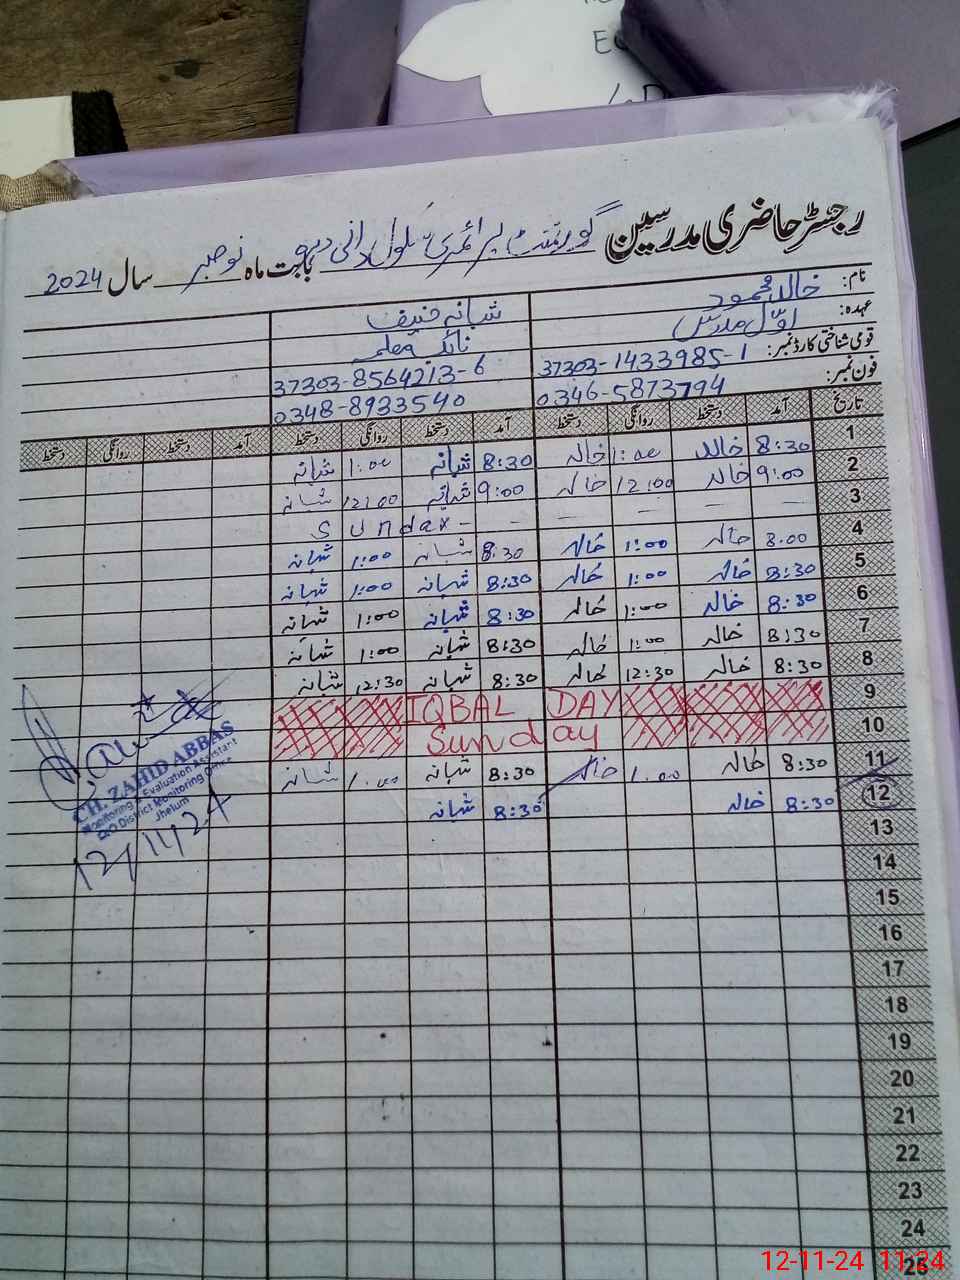 رجسٹر حاضری مدرسین گورنمنٹ پرائمری سکول بابت ماہ نومبر سال 2024
نام: خالد محمود شبانہ حنیف
عہدہ: اول مدرس معلمہ
قومی شناختی کارڈ نمبر: 37303-1433985-1 37303-8564213-6
فون نمبر: 0346-5873794 0348-8933540
تاریخ آمد دستخط روانگی دستخط آمد دستخط روانگی دستخط آمد دستخط روانگی دستخط
1 8:30 خالد 1:00 خالد 8:30 شبانہ 1:00 شبانہ
2 9:00 خالد 12:00 خالد 9:00 شبانہ 12:00 شبانہ
3 — — — — — — Sunday
4 8:00 خالد 1:00 خالد 8:30 شبانہ 1:00 شبانہ
5 8:30 خالد 1:00 خالد 8:30 شبانہ 1:00 شبانہ
6 8:30 خالد 1:00 خالد 8:30 شبانہ 1:00 شبانہ
7 8:30 خالد 1:00 خالد 8:30 شبانہ 1:00 شبانہ
8 8:30 خالد 12:30 خالد 8:30 شبانہ 12:30 شبانہ
9 IQBAL DAY
10 Sunday
11 8:30 خالد 1:00 خالد 8:30 شبانہ 1:00 شبانہ
12 8:30 خالد 8:30 شبانہ
13
14
15
16
17
18
19
20
21
22
23
24
25
CH. ZAHID ABBAS
Monitoring & Evaluation Assistant
District Monitoring Office
Jhelum
12/11/24
12-11-24 11:24